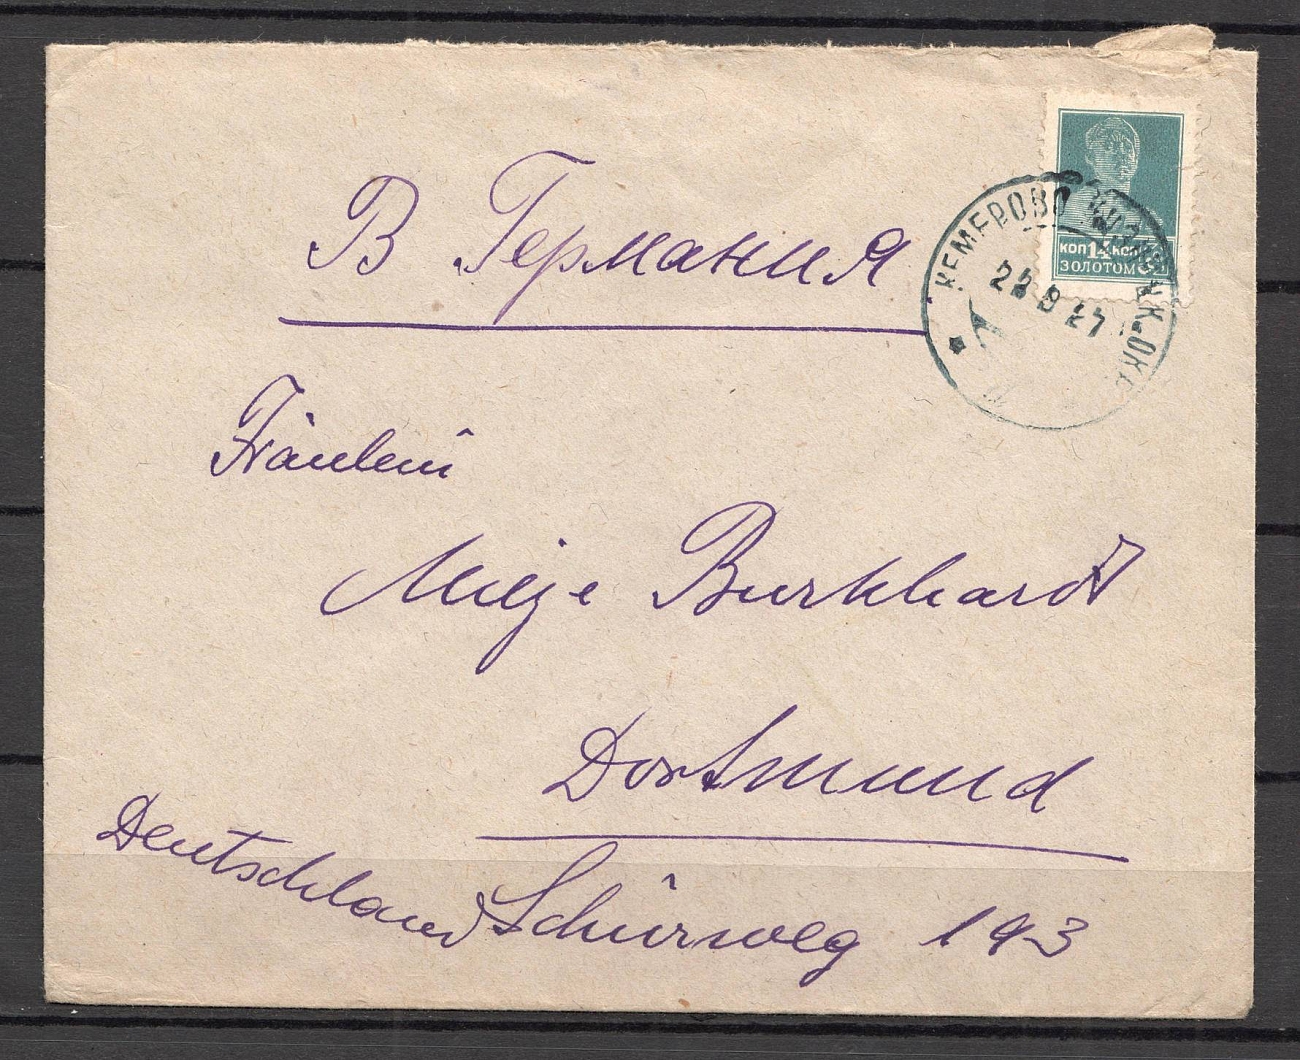 В Германия
КЕМЕРОВО
КОП 14 КОП
ЗОЛОТОМ
Fräulein
Burkhardt
Dortmund
Deutschland Schürweg 193